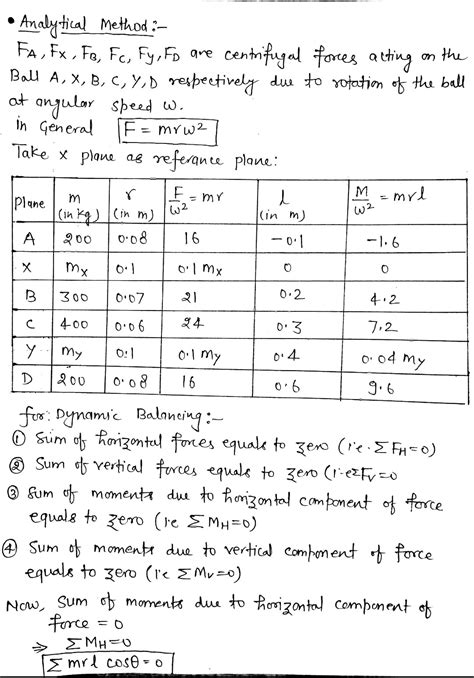 • Analytical Method:-
FA, FX, FB, FC, Fy, FD are centrifugal forces acting on the
Ball A, X, B, C, Y, D respectively due to rotation of the ball
at angular speed ω.
in General F = mrω²
Take x plane as referance plane:
Plane m (in kg) r (in m) F/ω² = mr l (in m) M/ω² = mrl
A 200 0.08 16 -0.1 -1.6
X mx 0.1 0.1 mx 0 0
B 300 0.07 21 0.2 4.2
C 400 0.06 24 0.3 7.2
Y my 0.1 0.1 my 0.4 0.04 my
D 200 0.08 16 0.6 9.6
for: Dynamic Balancing:-
① Sum of horizontal forces equals to zero (i.e. ΣFH=0)
② Sum of vertical forces equals to zero (i.e ΣFV=0
③ Sum of moments due to horizontal component of force
equals to zero (i.e ΣMH=0)
④ Sum of moments due to vertical component of force
equals to zero (i.e ΣMV=0)
Now, Sum of moments due to horizontal component of
force = 0
⇒ ΣMH=0
Σ mrl cosθ = 0